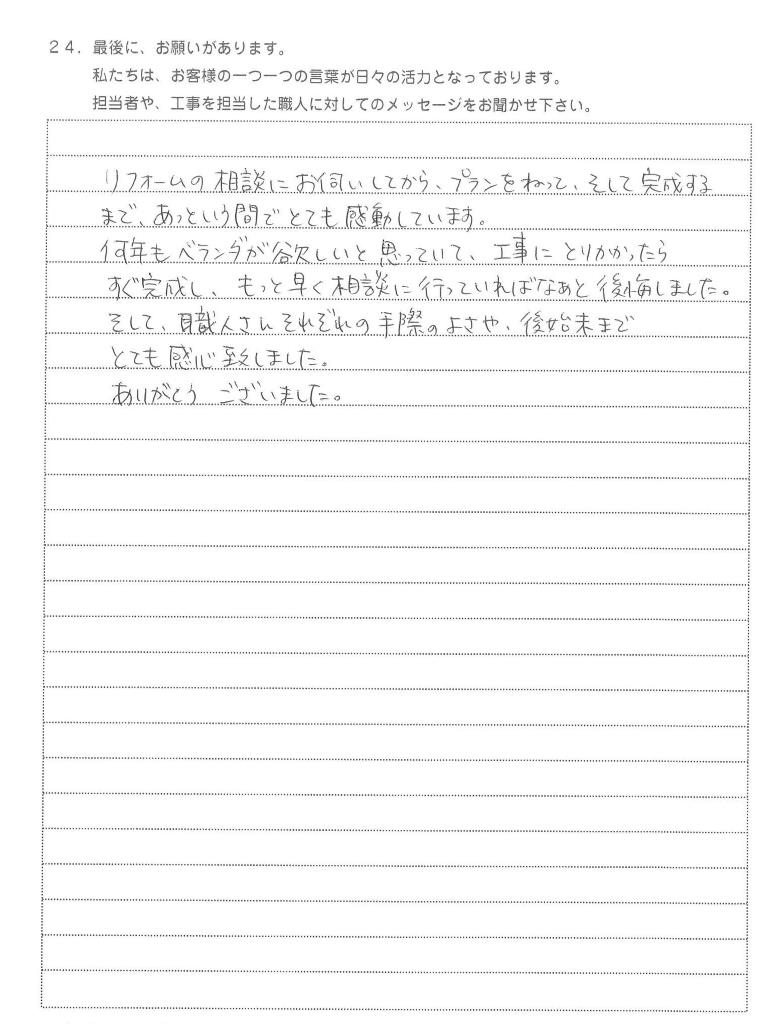 ２４．最後に、お願いがあります。
私たちは、お客様の一つ一つの言葉が日々の活力となっております。
担当者や、工事を担当した職人に対してのメッセージをお聞かせ下さい。
リフォームの相談にお伺いしてから、プランをねって、そして完成する
まで、あっという間でとても感動しています。
何年もベランダが欲しいと思っていて、工事にとりかかったら
すぐ完成し、もっと早く相談に行っていればなあと後悔しました。
そして、職人さんそれぞれの手際のよさや、後始末まで
とても感心致しました。
ありがとうございました。